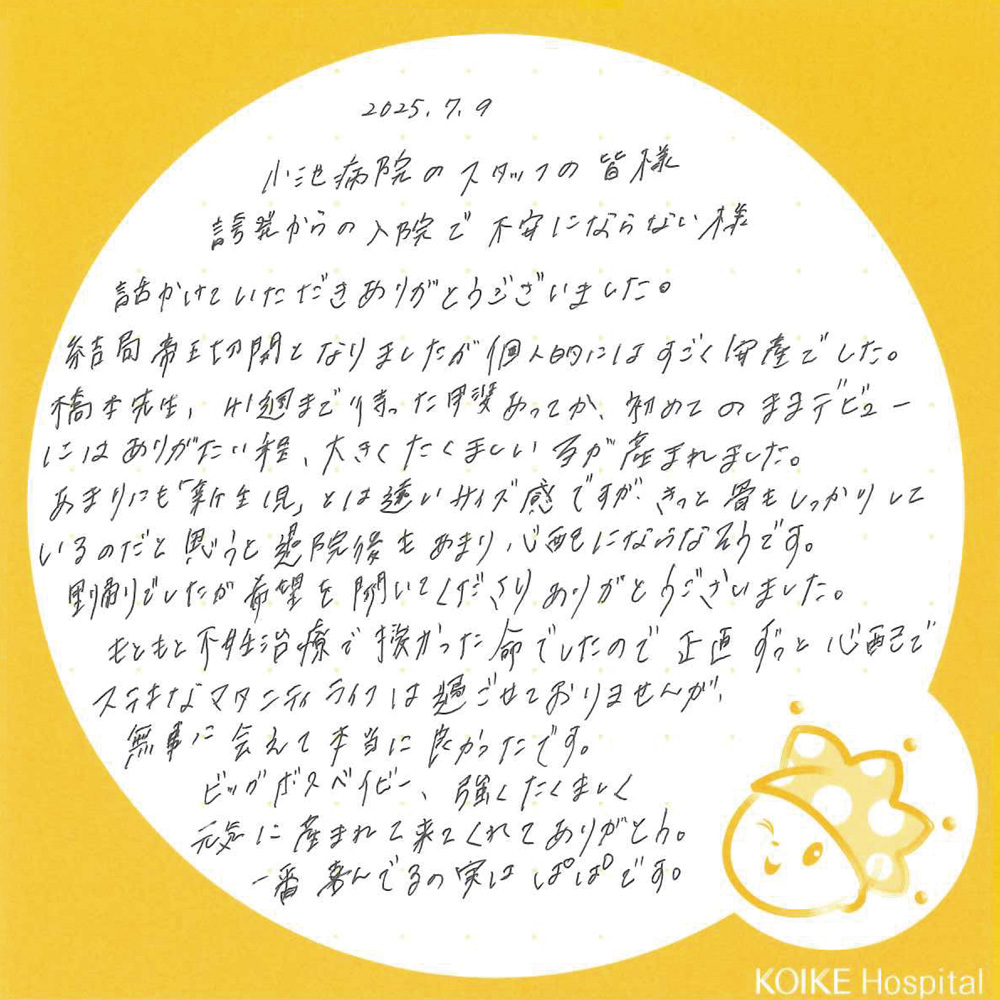 2025.7.9
小池病院のスタッフの皆様
誘発からの入院で不安にならない様
話かけていただきありがとうございました。
結局帝王切開となりましたが個人的にはすごく安産でした。
橋本先生、41週まで待った甲斐あってか、初めてのままデビュー
にはありがたい程、大きくたくましい子が産まれました。
あまりにも「新生児」とは遠いサイズ感ですが、きっと骨もしっかりして
いるのだと思うと退院後もあまり心配にならなそうです。
でしたが希望を聞いてくださりありがとうございました。
もともと不妊治療で授かった命でしたので正直ずっと心配で
ステキなマタニティライフは過ごせておりませんが、
無事に会えて本当に良かったです。
ビッグボスベイビー、強くたくましく
元気に産まれて来てくれてありがとう。
一番喜んでるの実はぱぱです。
KOIKE Hospital